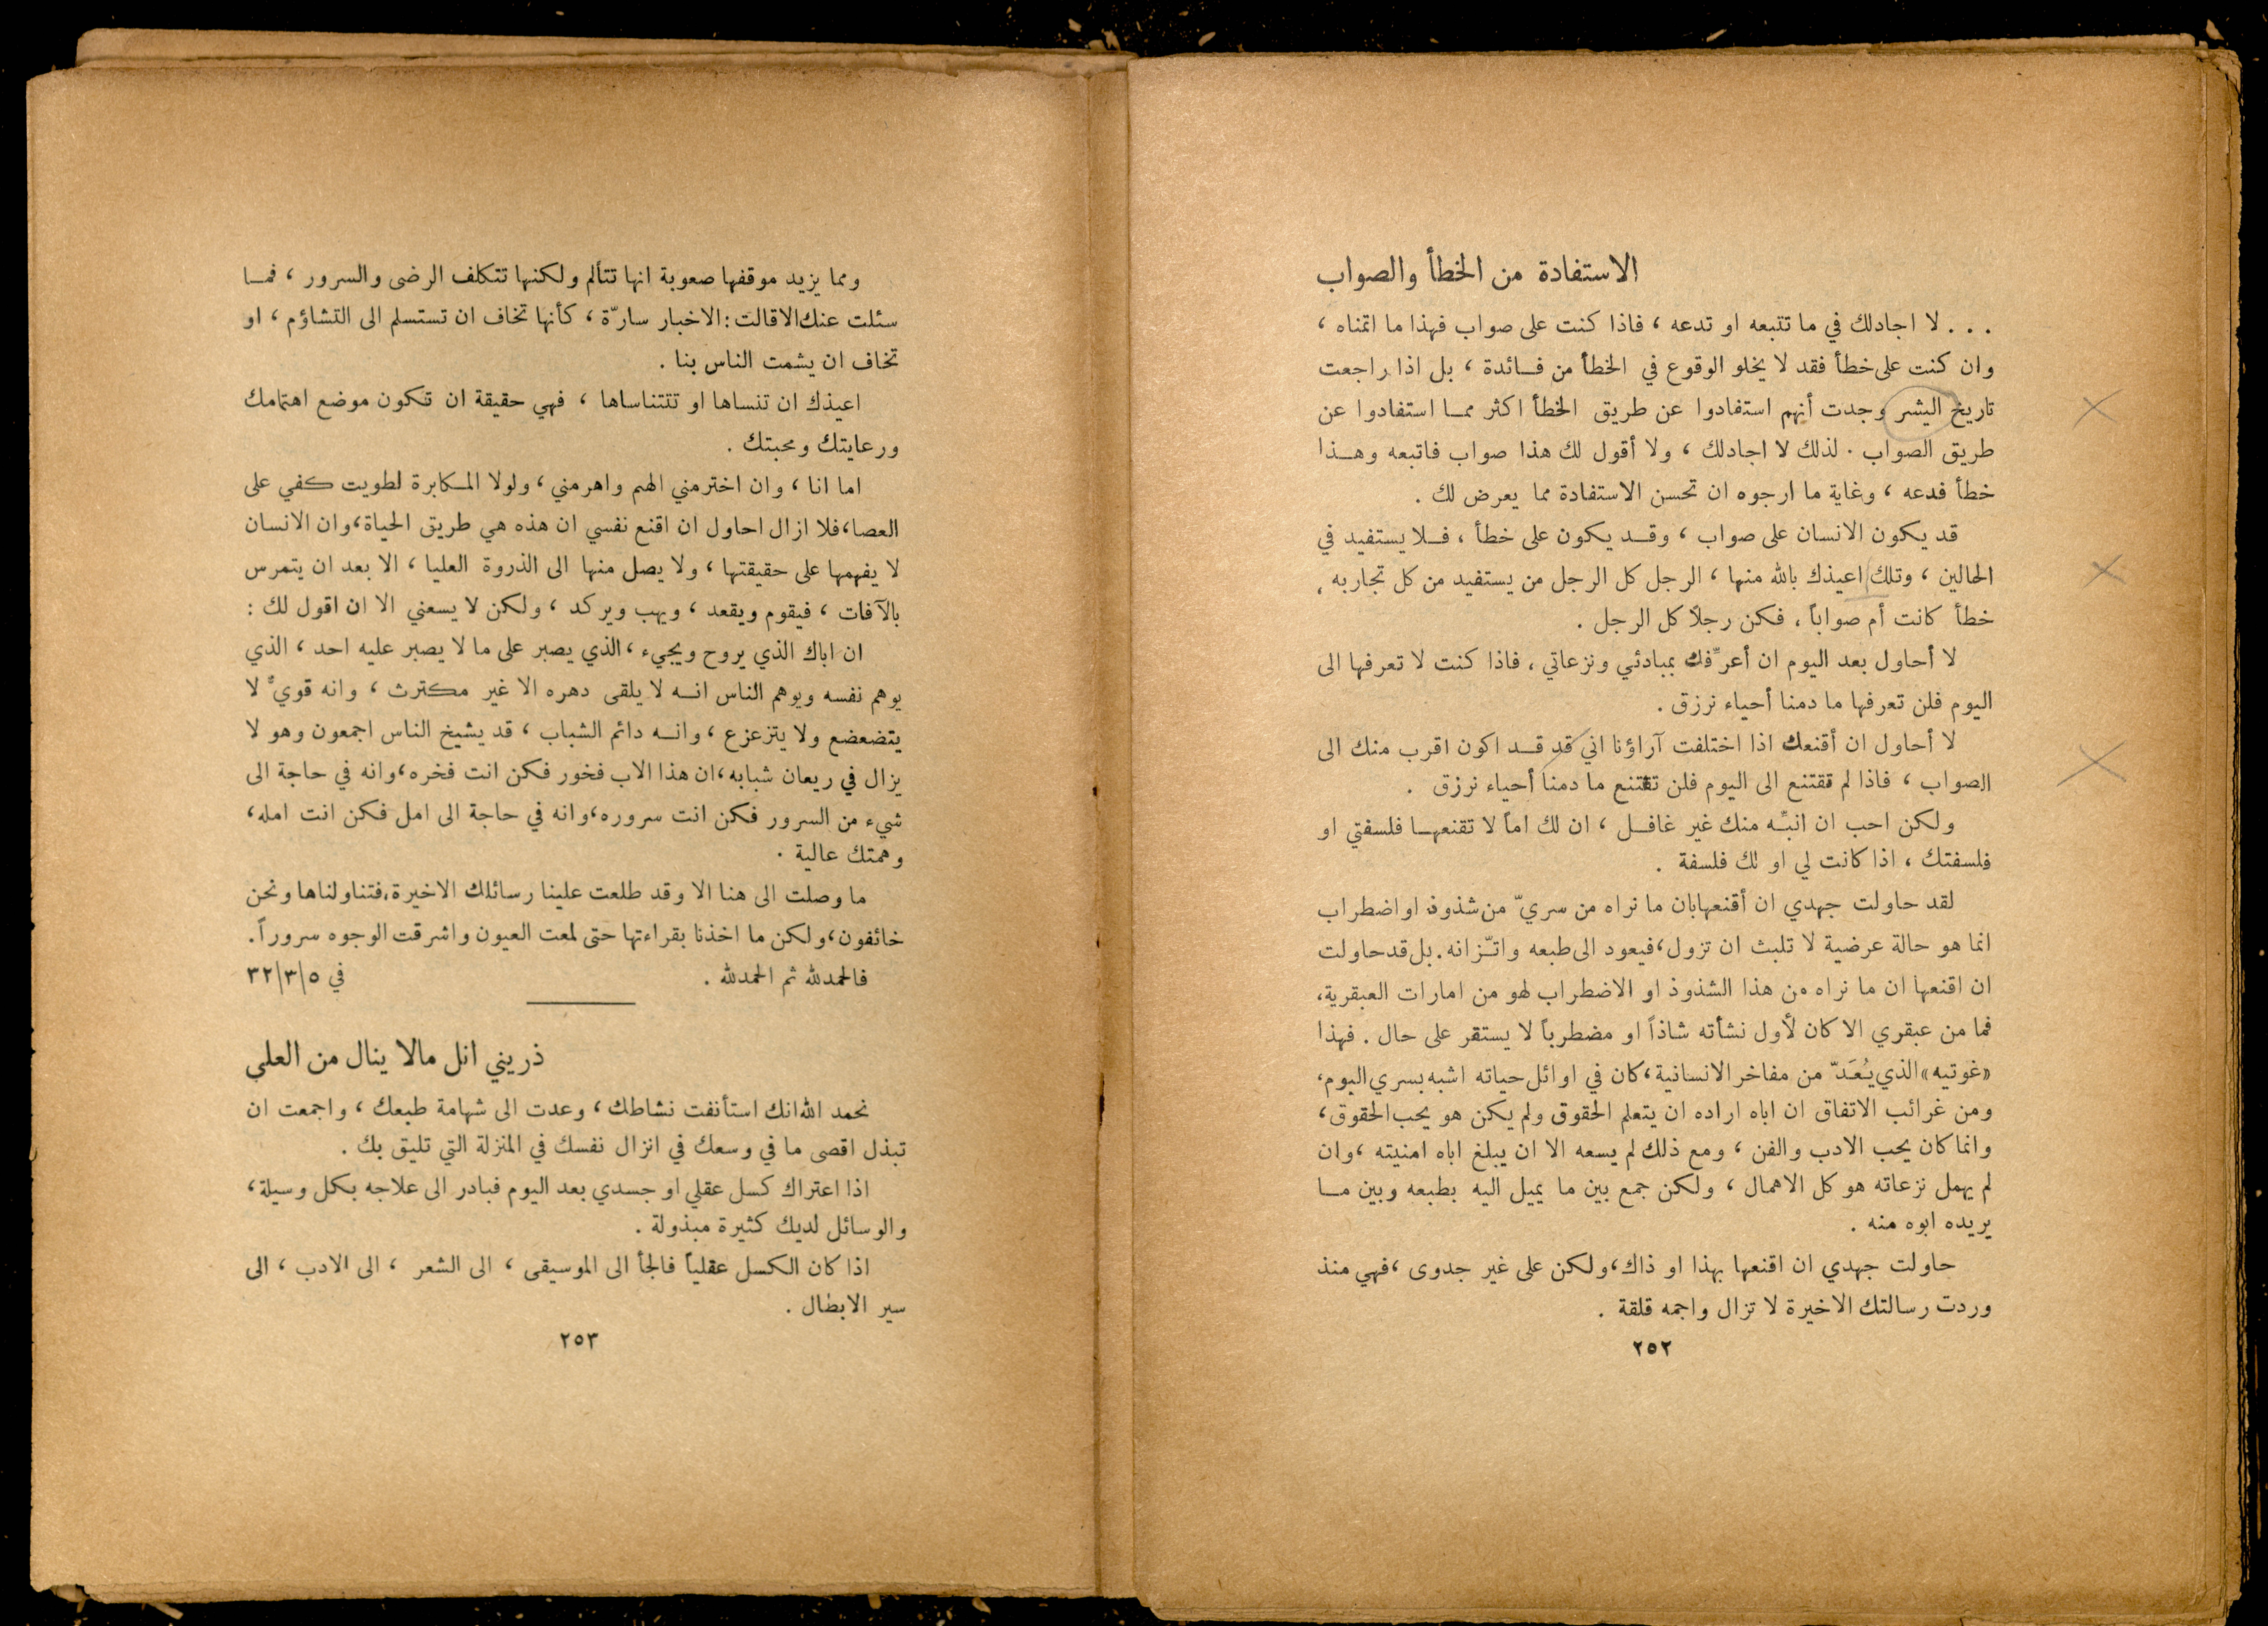 الاستفادة من الخطأ والصواب
... لا اجادلك في ما تتبعه او تدعه ، فاذا كنت على صواب فهذا ما اتمناه ،
وان كنت على خطأ فقد لا يخلو الوقوع في الخطأ من فـائدة ، بل اذا راجعت
تاريخ البشر وجدت أنهم استفادوا عن طريق الخطأ اكثر ممـا استفادوا عن
طريق الصواب . لذلك لا اجادلك ، ولا أقول لك هذا صواب فاتبعه وهـذا
خطأ فدعه ، وغاية ما ارجوه ان تحسن الاستفادة مما يعرض لك .
قد يكون الانسان على صواب ، وقـد يكون على خطأ ، فـلا يستفيد في
الحالين ، وتلك اعيذك بالله منها ، الرجل كل الرجل من يستفيد من كل تجاربه ،
خطأ كانت أم صواباً ، فكن رجلاً كل الرجل .
لا أحاول بعد اليوم ان أعرّفك بمبادئي ونزعاتي ، فاذا كنت لا تعرفها الى
اليوم فلن تعرفها ما دمنا أحياء نرزق .
لا أحاول ان أقنعك اذا اختلفت آراؤنا اني قد قـد اكون اقرب منك الى
الصواب ، فاذا لم تقتنع الى اليوم فلن تقتنع ما دمنا أحياء نرزق .
ولكن احب ان انبّـه منك غير غافـل ، ان لك اماً لا تقنعهـا فلسفتي او
فلسفتك ، اذا كانت لي او لك فلسفة .
لقد حاولت جهدي ان أقنعها بان ما نراه من سريّ من شذوذ او اضطراب
انما هو حالة عرضية لا تلبث ان تزول ، فيعود الى طبعه واتّـزانه . بل قد حاولت
ان اقنعها ان ما نراه من هذا الشذوذ او الاضطراب لهو من امارات العبقرية ،
فما من عبقري الا كان لأول نشأته شاذاً او مضطرباً لا يستقر على حال . فهذا
«غوتيه» الذي يُعَدّ من مفاخر الانسانية ، كان في اوائل حياته اشبه بسري اليوم ،
ومن غرائب الاتفاق ان اباه اراده ان يتعلم الحقوق ولم يكن هو يحب الحقوق ،
وانما كان يحب الادب والفن ، ومع ذلك لم يسعه الا ان يبلغ اباه امنيته ، وان
لم يهمل نزعاته هو كل الاهمال ، ولكن جمع بين ما يميل اليه بطبعه وبين مـا
يريده ابوه منه .
حاولت جهدي ان اقنعها بهذا او ذاك ، ولكن على غير جدوى ، فهي منذ
وردت رسالتك الاخيرة لا تزال واجمه قلقة .
٢٥٢
ومما يزيد موقفها صعوبة انها تتألم ولكنها تتكلف الرضى والسرور ، فمـا
سئلت عنك الا قالت : الاخبار سارّة ، كأنها تخاف ان تستسلم الى التشاؤم ، او
تخاف ان يشمت الناس بنا .
اعيذك ان تنساها او تتناساها ، فهي حقيقة ان تكون موضع اهتمامك
ورعايتك ومحبتك .
اما انا ، وان اخترمني الهم واهرمني ، ولولا المـكابرة لطويت كفي على
العصا ، فلا ازال احاول ان اقنع نفسي ان هذه هي طريق الحياة ، وان الانسان
لا يفهمها على حقيقتها ، ولا يصل منها الى الذروة العليا ، الا بعد ان يتمرس
بالآفات ، فيقوم ويقعد ، ويهب ويركد ، ولكن لا يسعني الا ان اقول لك :
ان اباك الذي يروح ويجيء ، الذي يصبر على ما لا يصبر عليه احد ، الذي
يوهم نفسه ويوهم الناس انـه لا يلقى دهره الا غير مكترث ، وانه قويّ لا
يتضعضع ولا يتزعزع ، وانـه دائم الشباب ، قد يشيخ الناس اجمعون وهو لا
يزال في ريعان شبابه ، ان هذا الاب فخور فكن انت فخره ، وانه في حاجة الى
شيء من السرور فكن انت سروره ، وانه في حاجة الى امل فكن انت امله ،
وهمتك عالية .
ما وصلت الى هنا الا وقد طلعت علينا رسائلك الاخيرة ، فتناولناها ونحن
خائفون ، ولكن ما اخذنا بقراءتها حتى لمعت العيون واشرقت الوجوه سروراً .
فالحمدلله ثم الحمدلله . في ٥|٣|٣٢
ذريني انل مالا ينال من العلى
نحمد الله انك استأنفت نشاطك ، وعدت الى شهامة طبعك ، واجمعت ان
تبذل اقصى ما في وسعك في انزال نفسك في المنزلة التي تليق بك .
اذا اعتراك كسل عقلي او جسدي بعد اليوم فبادر الى علاجه بكل وسيلة ،
والوسائل لديك كثيرة مبذولة .
اذا كان الكسل عقلياً فالجأ الى الموسيقى ، الى الشعر ، الى الادب ، الى
سير الابطال .
٢٥٣